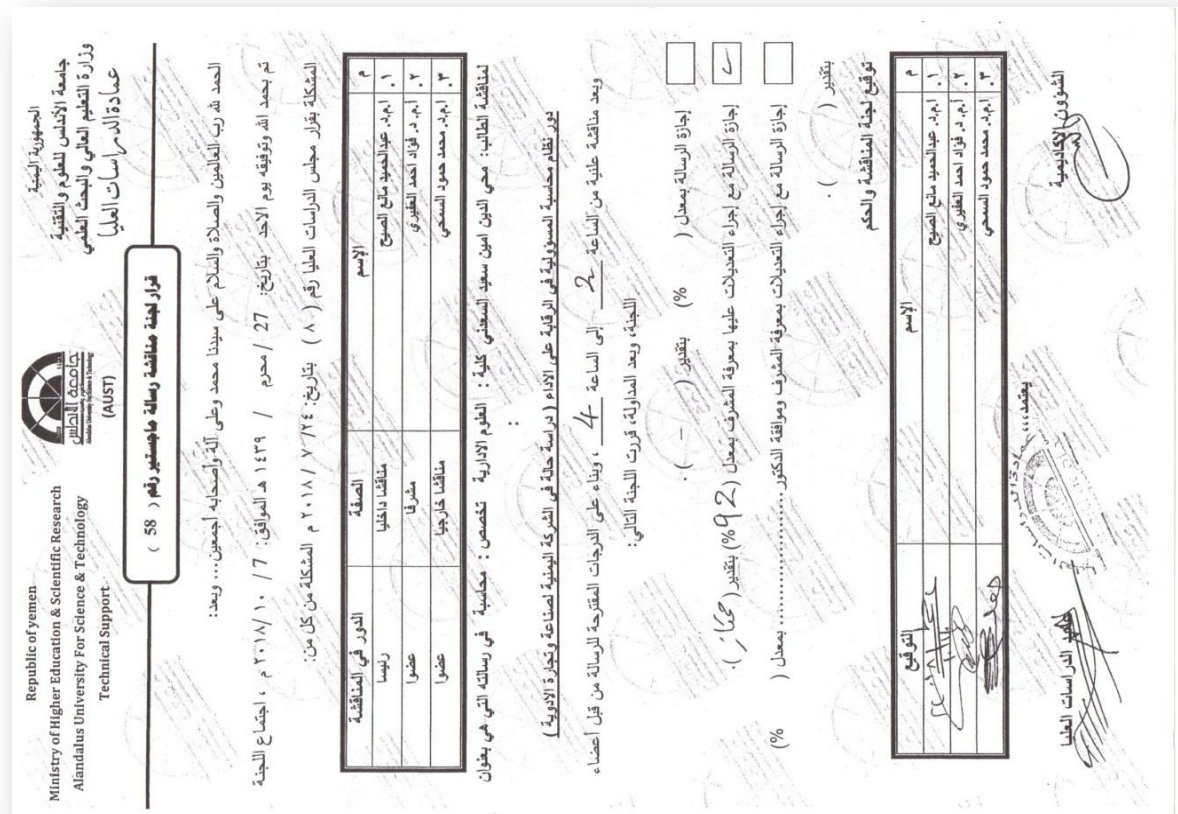 الجمهورية اليمنية
وزارة التعليم العالي والبحث العلمي
جامعة الأندلس للعلوم والتقنية
عمادة الدراسات العليا
جامعة الأندلس
Alandalus University For Science & Technology
(AUST)
Republic of yemen
Ministry of Higher Education & Scientific Research
Alandalus University For Science & Technology
Technical Support
قرار لجنة مناقشة رسالة ماجستير رقم ( 58 )
الحمد لله رب العالمين والصلاة والسلام على سيدنا محمد وعلى آلة وأصحابه أجمعين... وبعد:
تم بحمد الله وتوفيقه يوم الاحد بتاريخ: 27 / محرم / ١٤٣٩ هـ الموافق: 7 / ١٠ /٢٠١٨ م ، اجتماع اللجنة
المشكلة بقرار مجلس الدراسات العليا رقم ( ٨٠ ) بتاريخ: ٢٤/ ٧ /٢٠١٨ م المشكلة من كل من:
م الإسم الصفة الدور في المناقشة
٠١ ا.م.د. عبدالحميد مانع الصيح مناقشا داخليا رئيسا
٠٢ ا.م. د. فؤاد احمد العفيري مشرفا عضوا
٠٣ ا.م.د. محمد حمود السمحي مناقشا خارجيا عضوا
لمناقشة الطالب: محي الدين امين سعيد السعدني كلية : العلوم الادارية تخصص : محاسبة في رسالته التي هي بعنوان
:
دور نظام محاسبة المسؤولية في الرقابة على الاداء ( دراسة حالة في الشركة اليمنية لصناعة وتجارة الادوية )
وبعد مناقشة علنية من الساعة 2 إلى الساعة 4 ، وبناء على الدرجات المقترحة للرسالة من قبل أعضاء
اللجنة، وبعد المداولة، قررت اللجنة التالي:
إجازة الرسالة بمعدل ( %) بتقدير ( – ) .
إجازة الرسالة مع إجراء التعديلات عليها بمعرفة المشرف بمعدل (92%) بتقدير (ممتاز).
إجازة الرسالة مع إجراء التعديلات بمعرفة المشرف وموافقة الدكتور .................... بمعدل ( %)
بتقدير ( ) .
توقيع لجنة المناقشة والحكم
م الإسم التوقيع
٠١ ا.م.د. عبدالحميد مانع الصيح
٠٢ ا.م. د. فؤاد احمد العفيري
٠٣ ا.م.د. محمد حمود السمحي
الشؤون الاكاديمية
يعتمد،،،
عميد الدراسات العليا